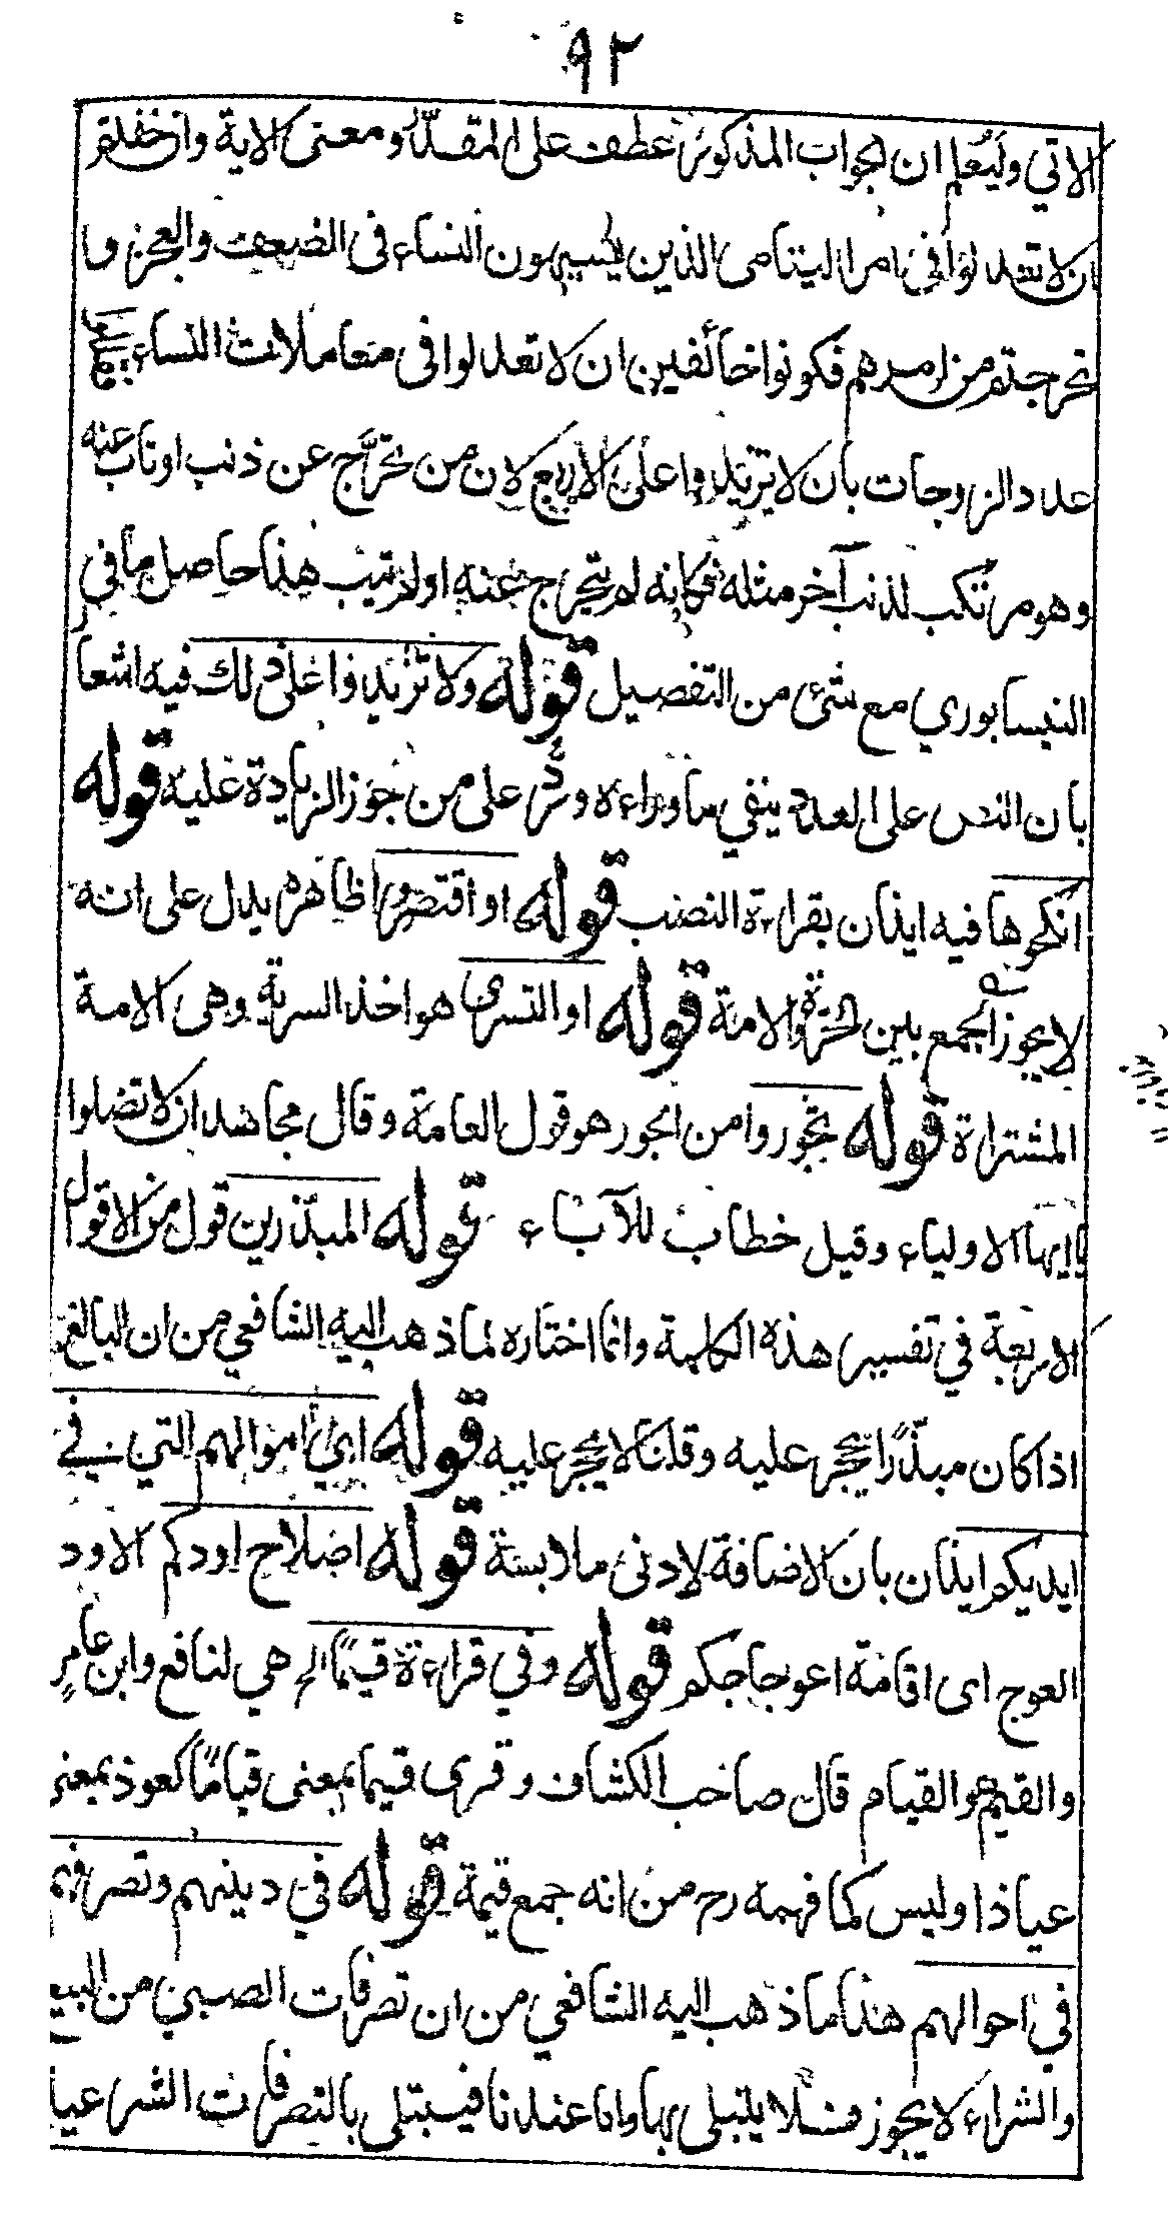 ٩٢
الاتي وليعلم ان الجواب المذكور عطف على المقدر ومعنى الاية وان خفتم
ان لا تعدلوا في امر اليتامى الذين يشبهون النساء في الضعف والعجز وما
تحرجتم من امرهم فكونوا خائفين ان لا تعدلوا في معاملات النساء
عدد الزوجات بان لا تزيدوا على الاربع لان من تحرّج عن ذنب او تاب عنه
وهو مرتكب لذنب آخر مثله فكانه لم يتحرج عنه او لم يتب هذا حاصل ما في
النيسابوري مع شيء من التفصيل قوله ولا تزيدوا على ذلك فيه اشعا
بان النص على العدد ينفي ما وراءه وردّ على من جوز الزيادة عليه قوله
انكحوها فيه ايذان بقراءة النصب قوله او اقتصروا ظاهره يدل على انه
لا يجوز الجمع بين الحرة والامة قوله او التسرى هو اخذ السرية وهى الامة
المشتراة قوله تجوروا من الجور هو قول العامة وقال مجاهد ان لا تضلوا
يا ايها الاولياء وقيل خطاب للآباء قوله المبذرين قول من الاقوال
الاربعة في تفسير هذه الكلمة وانما اختاره لما ذهب اليه الشافعي من ان البالغ
اذا كان مبذّرًا يحجر عليه وقلنا لا يحجر عليه قوله اي اموالهم التي في
ايديكم ايذان بان الاضافة لادنى ملابسة قوله اصلاح اودكم الاود
العوج اى اقامة اعوجاجكم قوله وفي قراءة قيمًا الخ هي لنافع وابن عامرٍ
والقيم هو القيام قال صاحب الكشاف وقرى قيما بمعنى قيامًا كعوذ بمعنى
عياذا وليس كما فهمه رح من انه جمع قيمة قوله في دينهم وتصرفهم
في احوالهم هذا ما ذهب اليه الشافعي من ان تصرفات الصبي من البيع
والشراء لا يجوز فلا يبتلى بها واما عندنا فيبتلى بالتصرفات الشرعيا